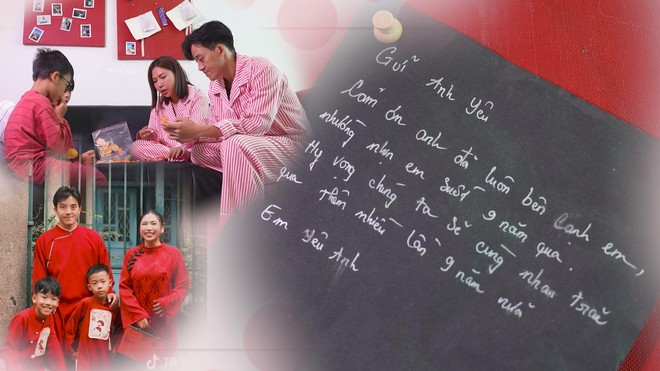 Gửi Anh Yêu
Cảm ơn anh đã luôn bên cạnh em,
nhường nhịn em suốt 9 năm qua.
Hy vọng chúng ta sẽ cùng nhau trải
qua thêm nhiều lần 9 năm nữa
Em Yêu Anh